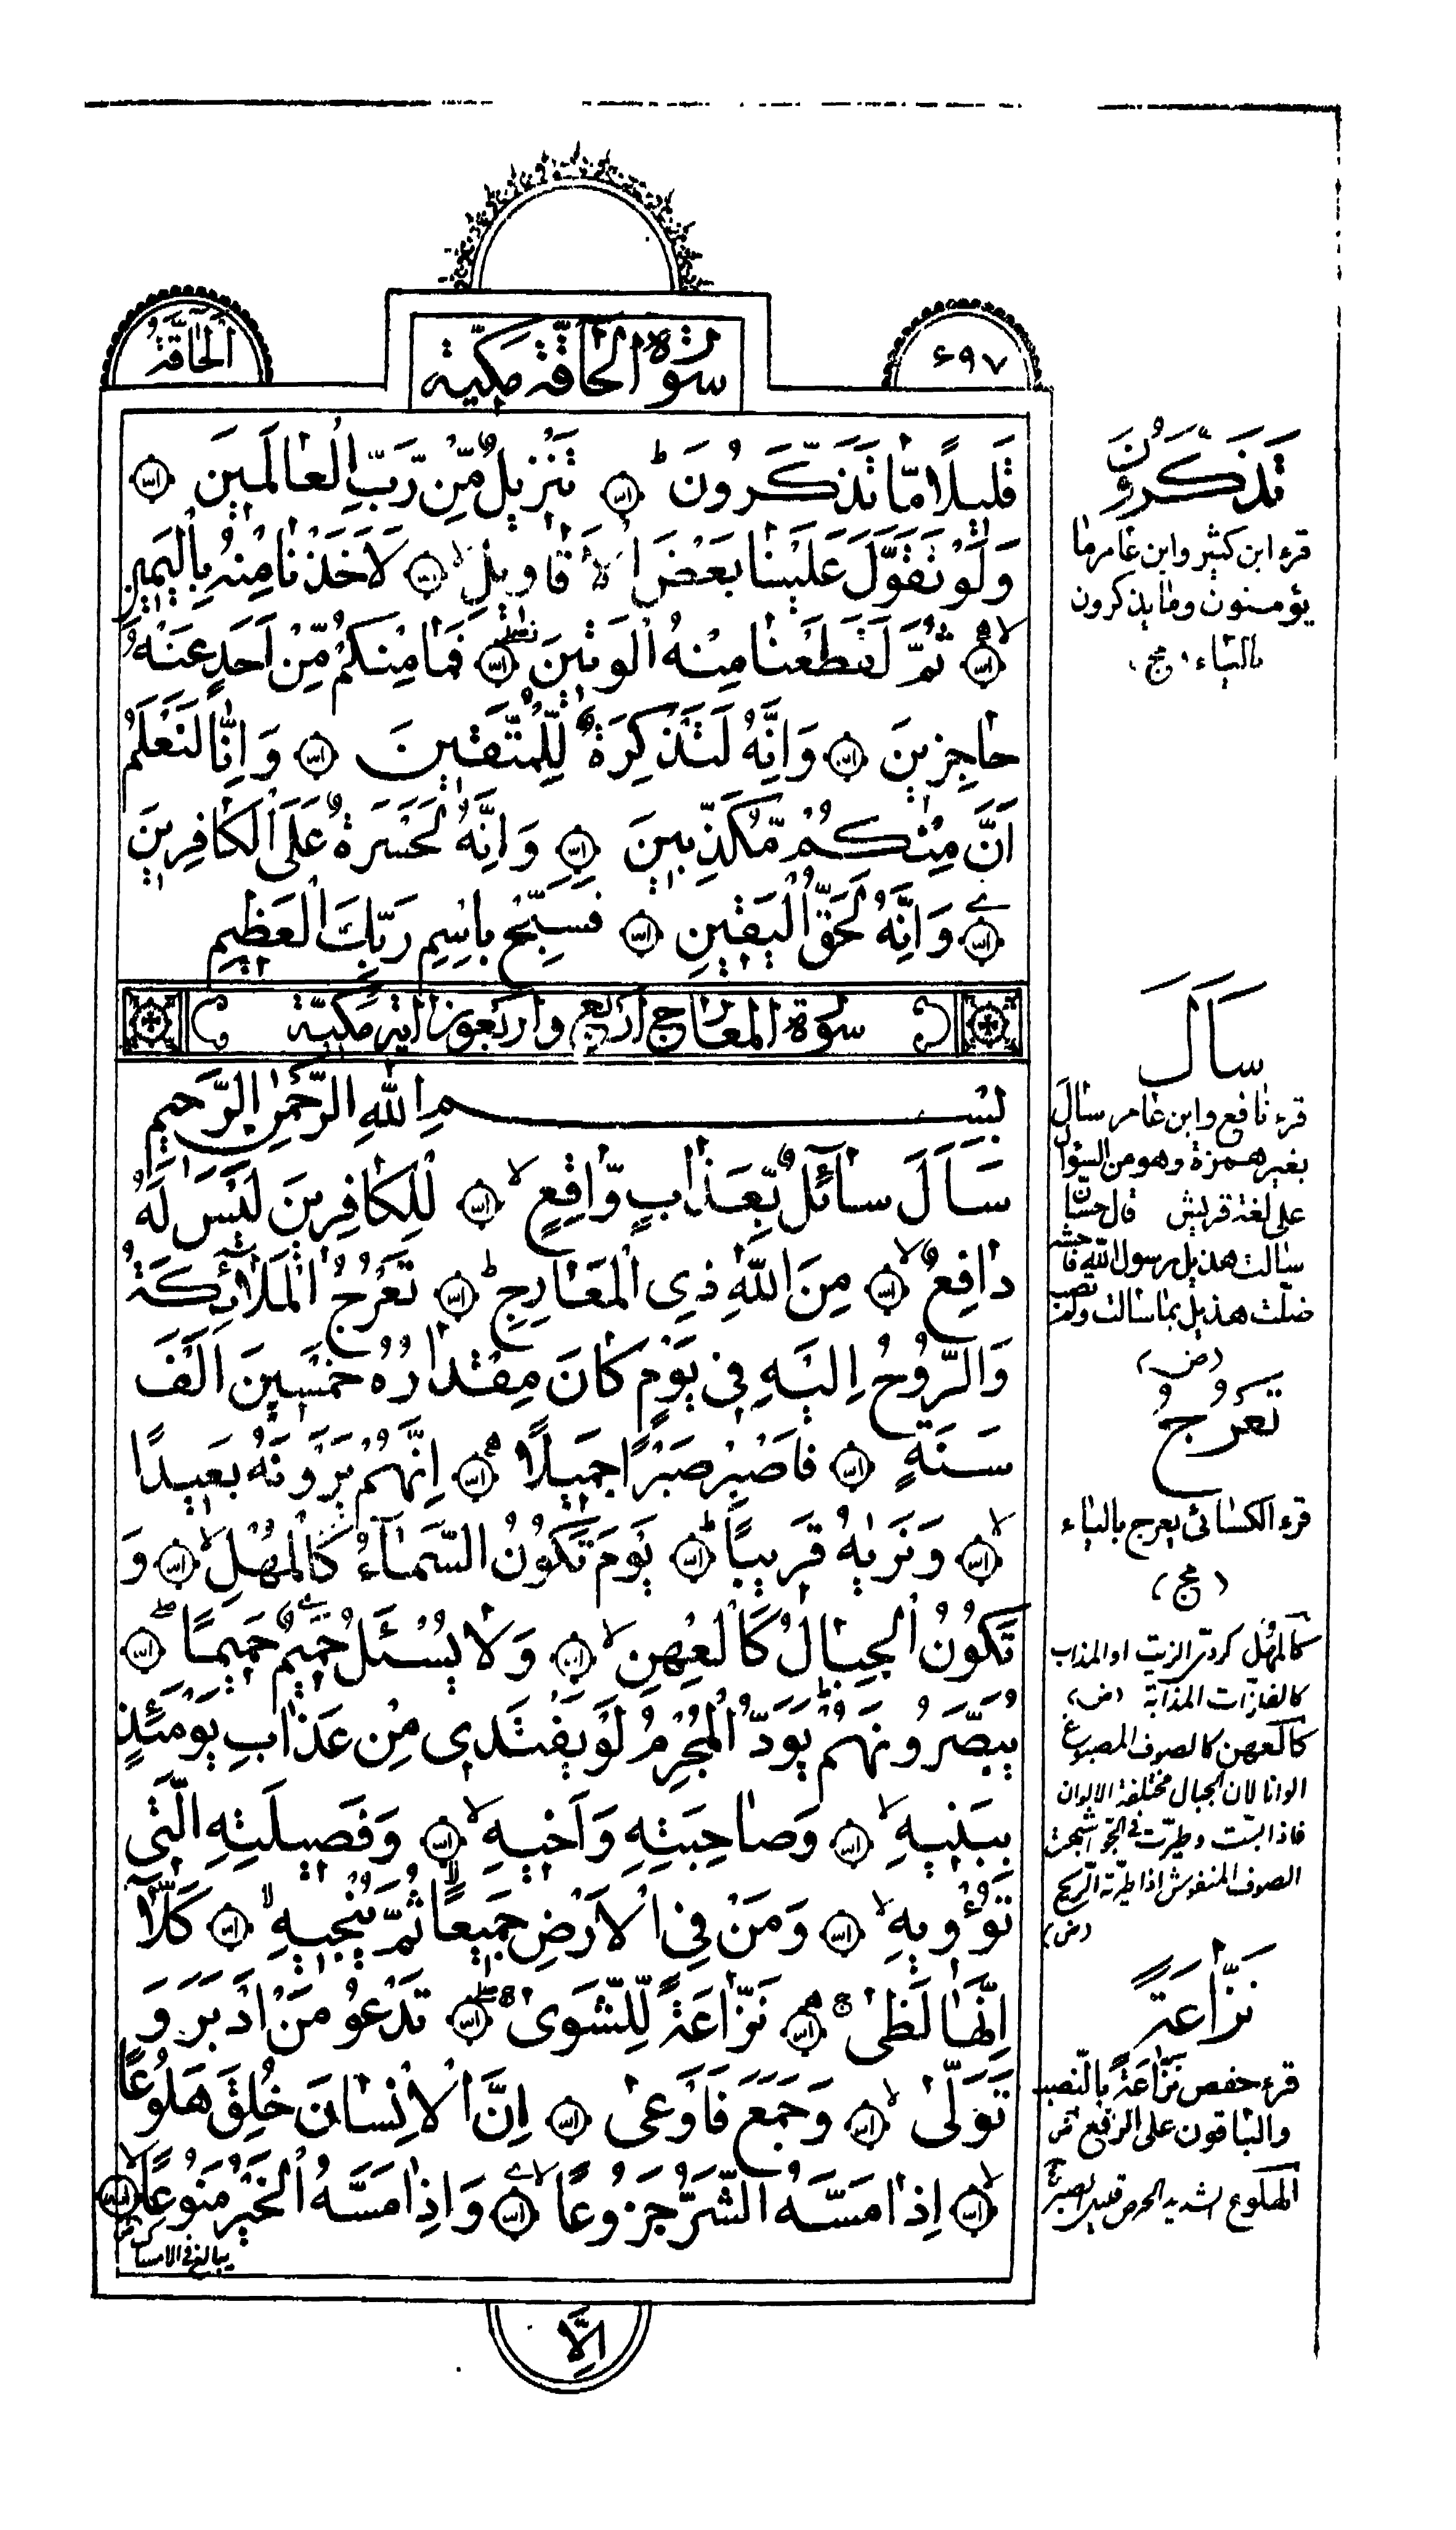 الْحَاقَّةُ
سورة الحاقة مكية
۶۹۷
قَلِيلًا مَّا تَذَكَّرُونَ تَنْزِيلٌ مِّنْ رَّبِّ الْعَالَمِينَ
وَلَوْ تَقَوَّلَ عَلَيْنَا بَعْضَ الْأَقَاوِيلِ لَأَخَذْنَا مِنْهُ بِالْيَمِينِ
ثُمَّ لَقَطَعْنَا مِنْهُ الْوَتِينَ فَمَا مِنْكُمْ مِّنْ أَحَدٍ عَنْهُ
حَاجِزِينَ وَإِنَّهُ لَتَذْكِرَةٌ لِّلْمُتَّقِينَ وَإِنَّا لَنَعْلَمُ
أَنَّ مِنْكُمْ مُّكَذِّبِينَ وَإِنَّهُ لَحَسْرَةٌ عَلَى الْكَافِرِينَ
وَإِنَّهُ لَحَقُّ الْيَقِينِ فَسَبِّحْ بِاسْمِ رَبِّكَ الْعَظِيمِ
سورة المعارج أربع وأربعون آية مكية
بِسْمِ اللَّهِ الرَّحْمَٰنِ الرَّحِيمِ
سَأَلَ سَآئِلٌ بِّعَذَابٍ وَّاقِعٍ لِلْكَافِرِينَ لَيْسَ لَهُ
دَافِعٌ مِنَ اللَّهِ ذِي الْمَعَارِجِ تَعْرُجُ الْمَلَآئِكَةُ
وَالرُّوحُ إِلَيْهِ فِي يَوْمٍ كَانَ مِقْدَارُهُ خَمْسِينَ أَلْفَ
سَنَةٍ فَاصْبِرْ صَبْرًا جَمِيلًا إِنَّهُمْ يَرَوْنَهُ بَعِيدًا
وَنَرَىٰهُ قَرِيبًا يَوْمَ تَكُونُ السَّمَآءُ كَالْمُهْلِ وَ
تَكُونُ الْجِبَالُ كَالْعِهْنِ وَلَا يَسْئَلُ حَمِيمٌ حَمِيمًا
يُبَصَّرُونَهُمْ يَوَدُّ الْمُجْرِمُ لَوْ يَفْتَدِي مِنْ عَذَابِ يَوْمَئِذٍ
بِبَنِيهِ وَصَاحِبَتِهِ وَأَخِيهِ وَفَصِيلَتِهِ الَّتِي
تُؤْوِيهِ وَمَنْ فِي الْأَرْضِ جَمِيعًا ثُمَّ يُنْجِيهِ كَلَّآ
إِنَّهَا لَظَىٰ نَزَّاعَةً لِّلشَّوَىٰ تَدْعُو مَنْ أَدْبَرَ وَ
تَوَلَّىٰ وَجَمَعَ فَأَوْعَىٰ إِنَّ الْإِنْسَانَ خُلِقَ هَلُوعًا
إِذَا مَسَّهُ الشَّرُّ جَزُوعًا وَإِذَا مَسَّهُ الْخَيْرُ مَنُوعًا
يبالغ في الامساك
إِلَّا
تَذَكَّرُونَ
قرء ابن كثير وابن عامر ما
يؤمنون وما يذكرون
بالياء (مج)
سَأَلَ
قرء نافع وابن عامر سَالَ
بغير همزة وهو من السؤال
على لغة قريش قال حسّان
سالت هذيل رسول الله فاحشة
ضلّت هذيل بما سالت ولم تصب
(ض)
تَعْرُجُ
قرء الكسائي يعرج بالياء
(مج)
كالمهل كردي الزيت او المذاب
كالفلزّات المذابة (ض)
كالعهن كالصوف المصبوغ
الوانا لان الجبال مختلفة الالوان
فاذا بسّت وطيّرت في الجوّ اشبهت
الصوف المنفوش اذا طيّرته الريح
(ض)
نَزَّاعَةً
قرء حفص نَزَّاعَةً بالنصب
والباقون على الرفع
الهلوع الشديد الحرص قليل الصبر